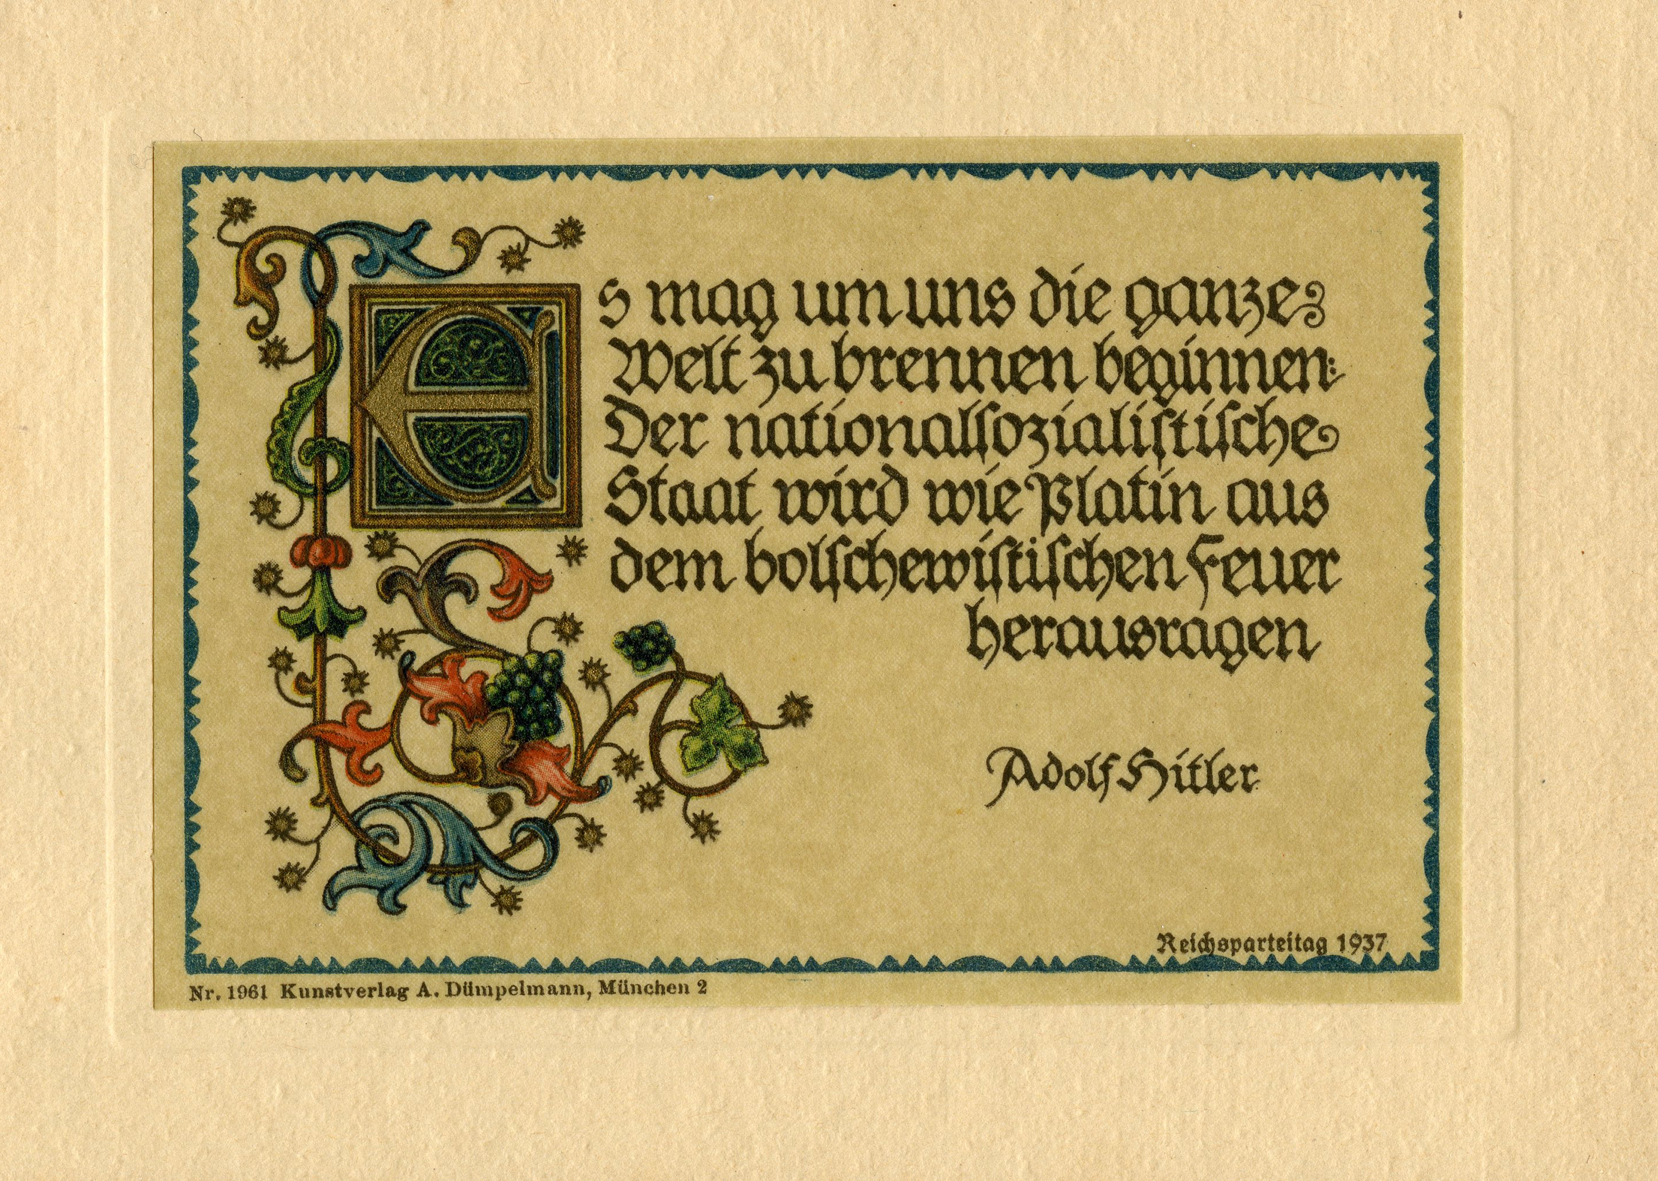 Es mag um uns die ganze
Welt zu brennen beginnen:
Der nationalſozialiſtiſche
Staat wird wie Platin aus
dem bolſchewiſtiſchen Feuer
herausragen
Adolf Hitler
Reichsparteitag 1937
Nr. 1961 Kunstverlag A. Dümpelmann, München 2